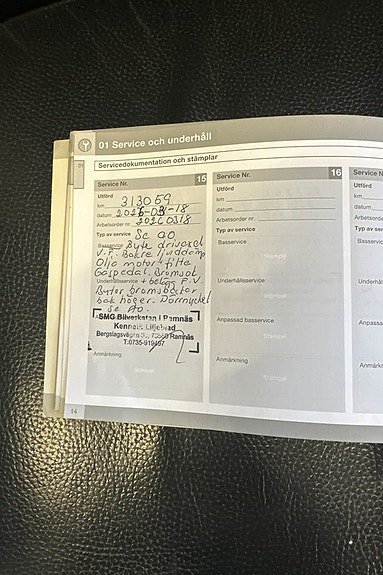 01 Service och underhåll
Servicedokumentation och stämplar
01
Service Nr. 15
Utförd
km 313059
datum
Arbetsorder nr.
Typ av service Se AO
Basservice Byte drivaxel
V.F. Bakre ljuddämp
Olja motor + filte
Gaspedal. Bromsok
Underhållsservice + belägg F.V.
Byter bromsbackor
bak höger. Dörrnyckel
Se AO.
SMG Bilverkstan i Ramnäs
Kenneth Liljebrad
Bergslagsvägen 73060 Ramnäs
T:0735-919467
Anmärkning
Stämpel
14
Service Nr. 16
Utförd
km
datum
Arbetsorder nr.
Typ av service
Basservice
Stämpel
Underhållsservice
Stämpel
Anpassad basservice
Stämpel
Anmärkning
Stämpel
Service N
Utförd
km
datum
Arbetsord
Typ av se
Basservic
Underhåll
Anpassad
Anmärkni